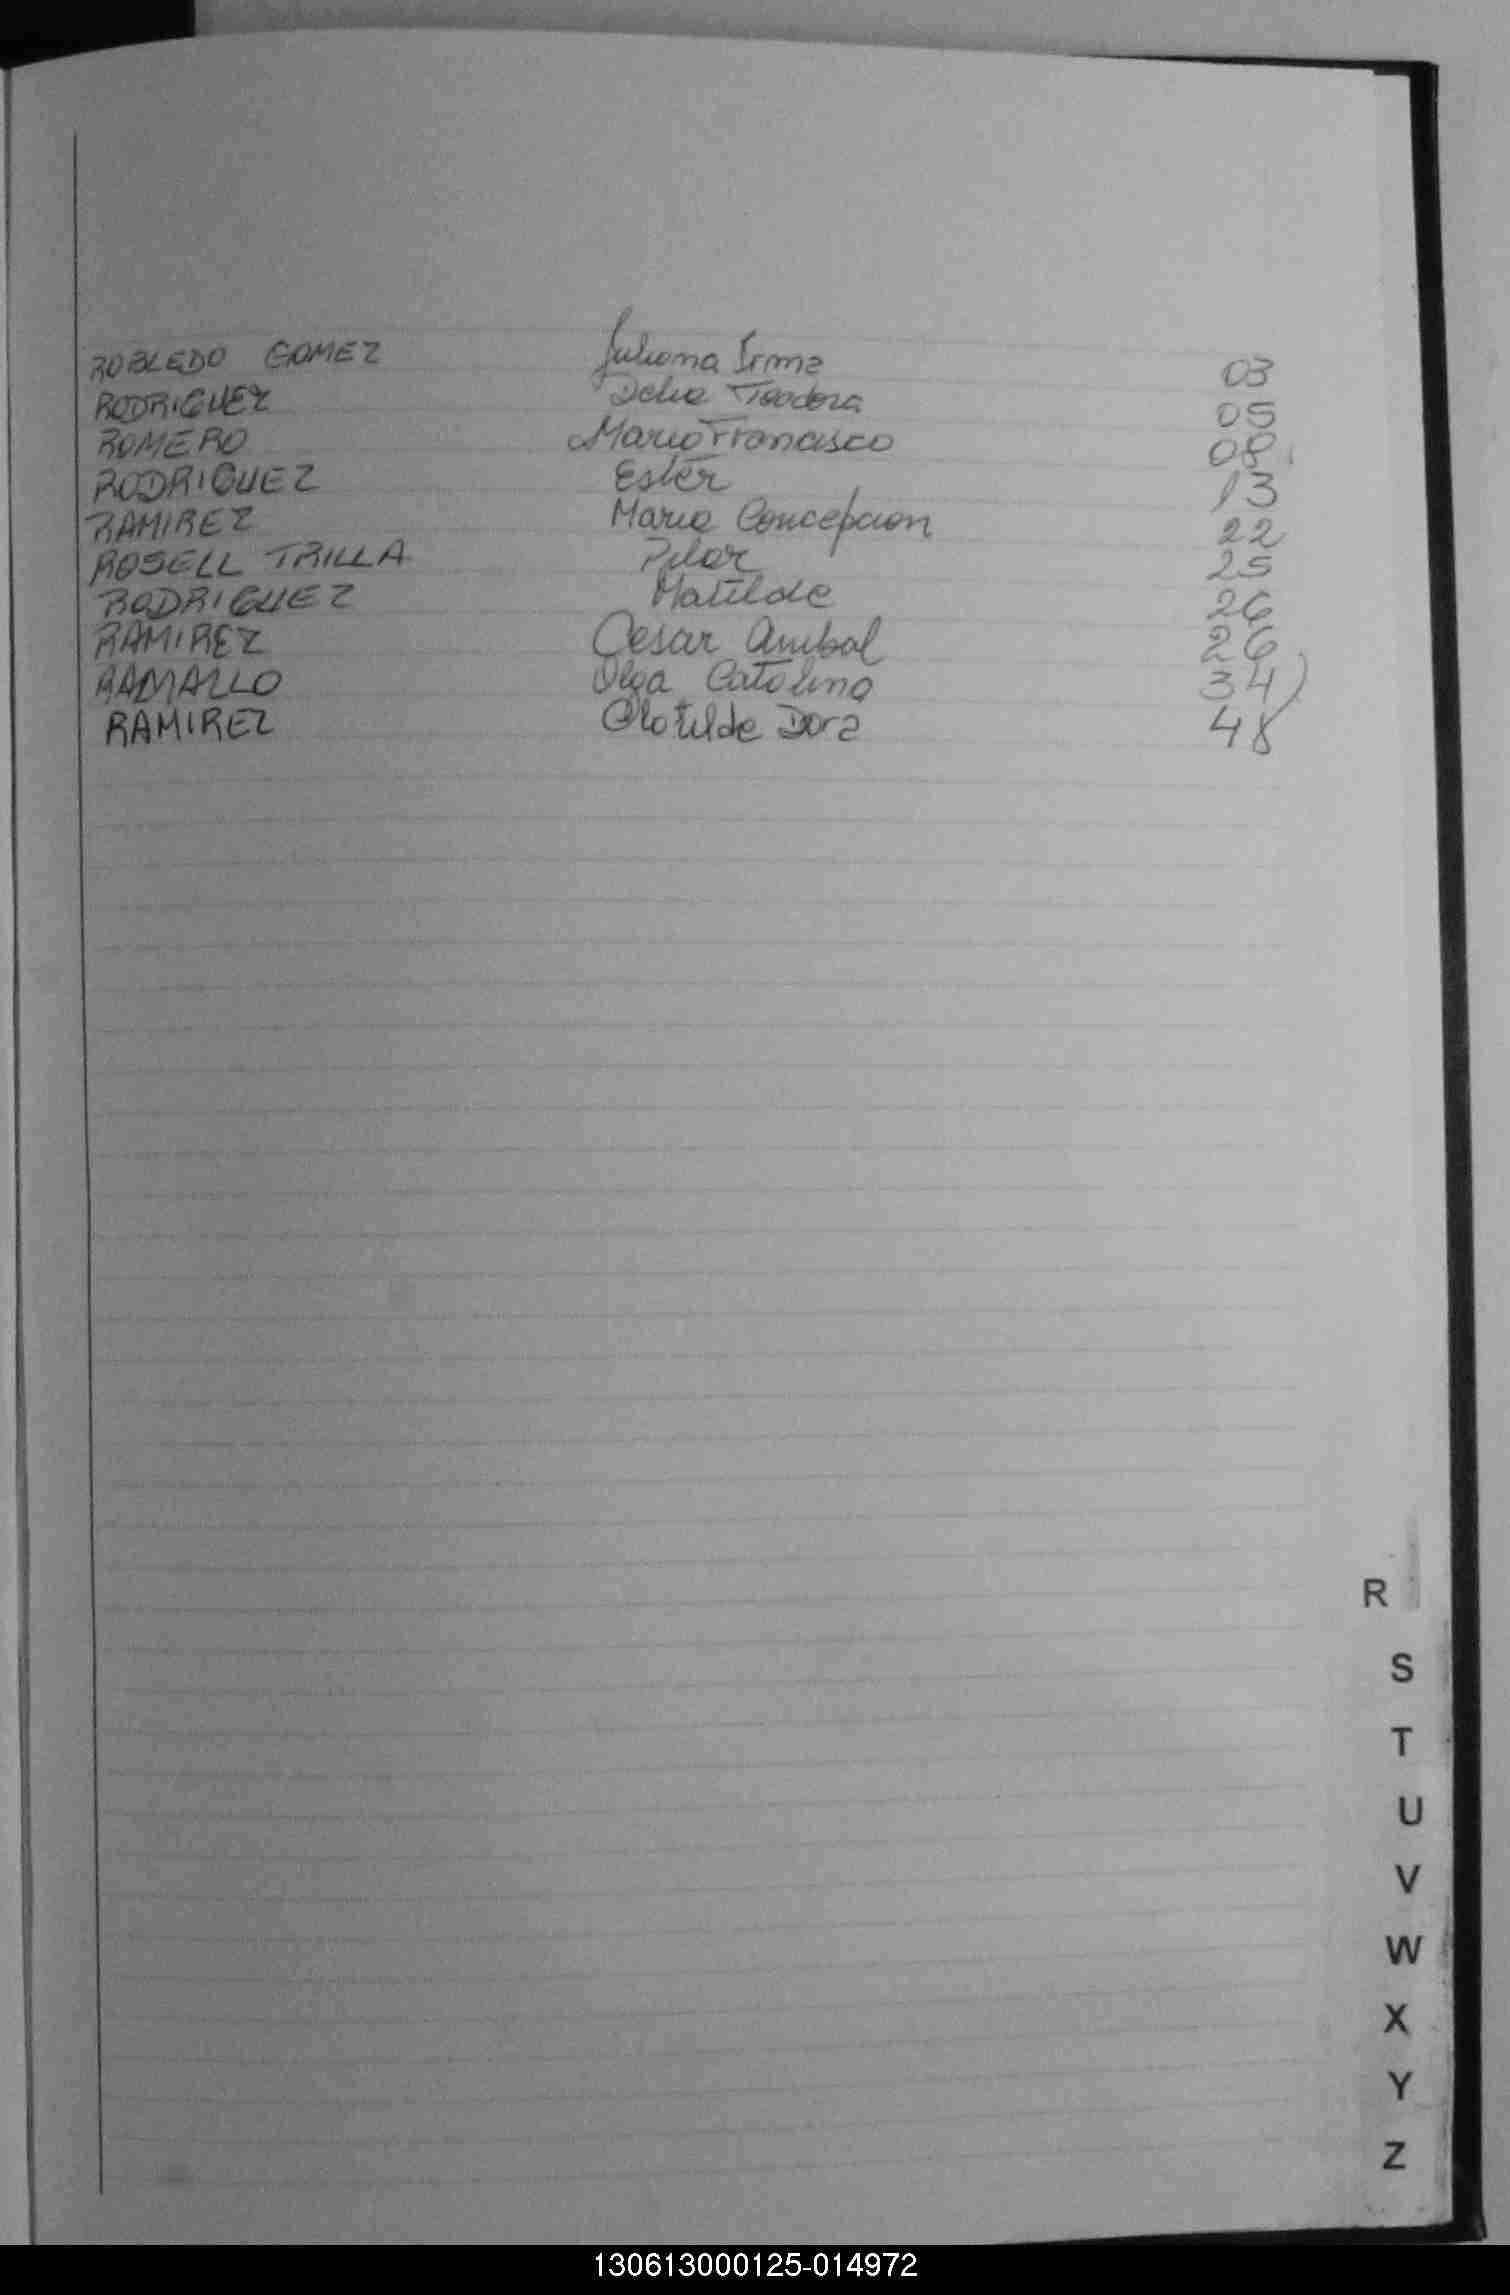 ROBLEDO GOMEZ Juliana Irma 03
RODRIGUEZ Delia Teodora 05
ROMERO Mario Francisco 08
RODRIGUEZ Ester 13
RAMIREZ Maria Concepcion 22
ROSELL TRILLA Pilar 25
RODRIGUEZ Matilde 26
RAMIREZ Cesar Anibal 26
RAMALLO Olga Catalina 34
RAMIREZ Clotilde Dora 48
R
S
T
U
V
W
X
Y
Z
130613000125-014972